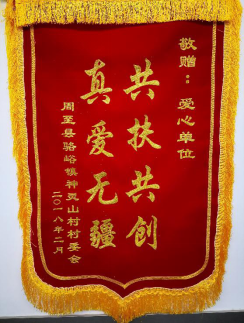 敬赠：爱心单位
共扶共创
真爱无疆
周至县骆峪镇神灵山村村委会
二〇一八年二月